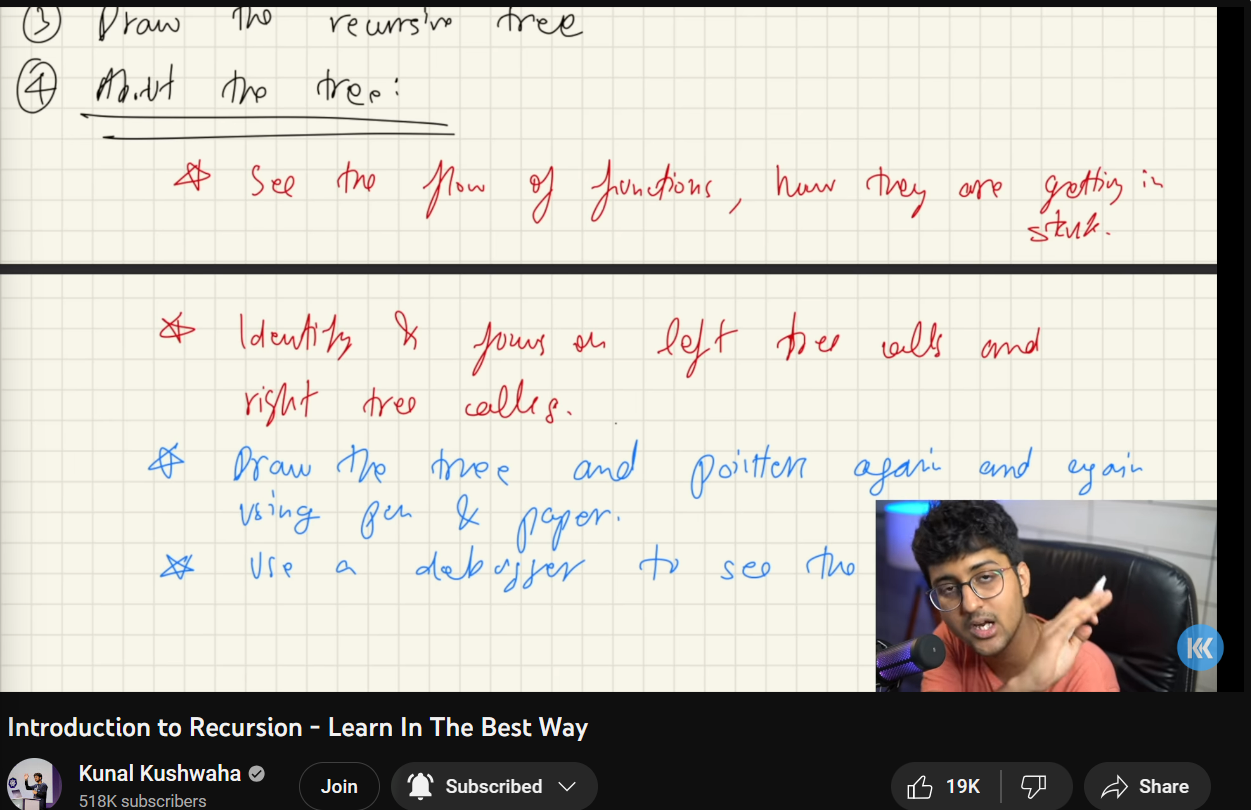 ③ Draw the recursive tree
④ About the tree:
☆ See the flow of functions, how they are getting in
stack.
☆ Identify & focus on left tree calls and
right tree calls.
☆ Draw the tree and pointers again and again
using pen & paper.
☆ Use a debugger to see the
KK
Introduction to Recursion - Learn In The Best Way
Kunal Kushwaha
518K subscribers
Join
Subscribed
19K
Share